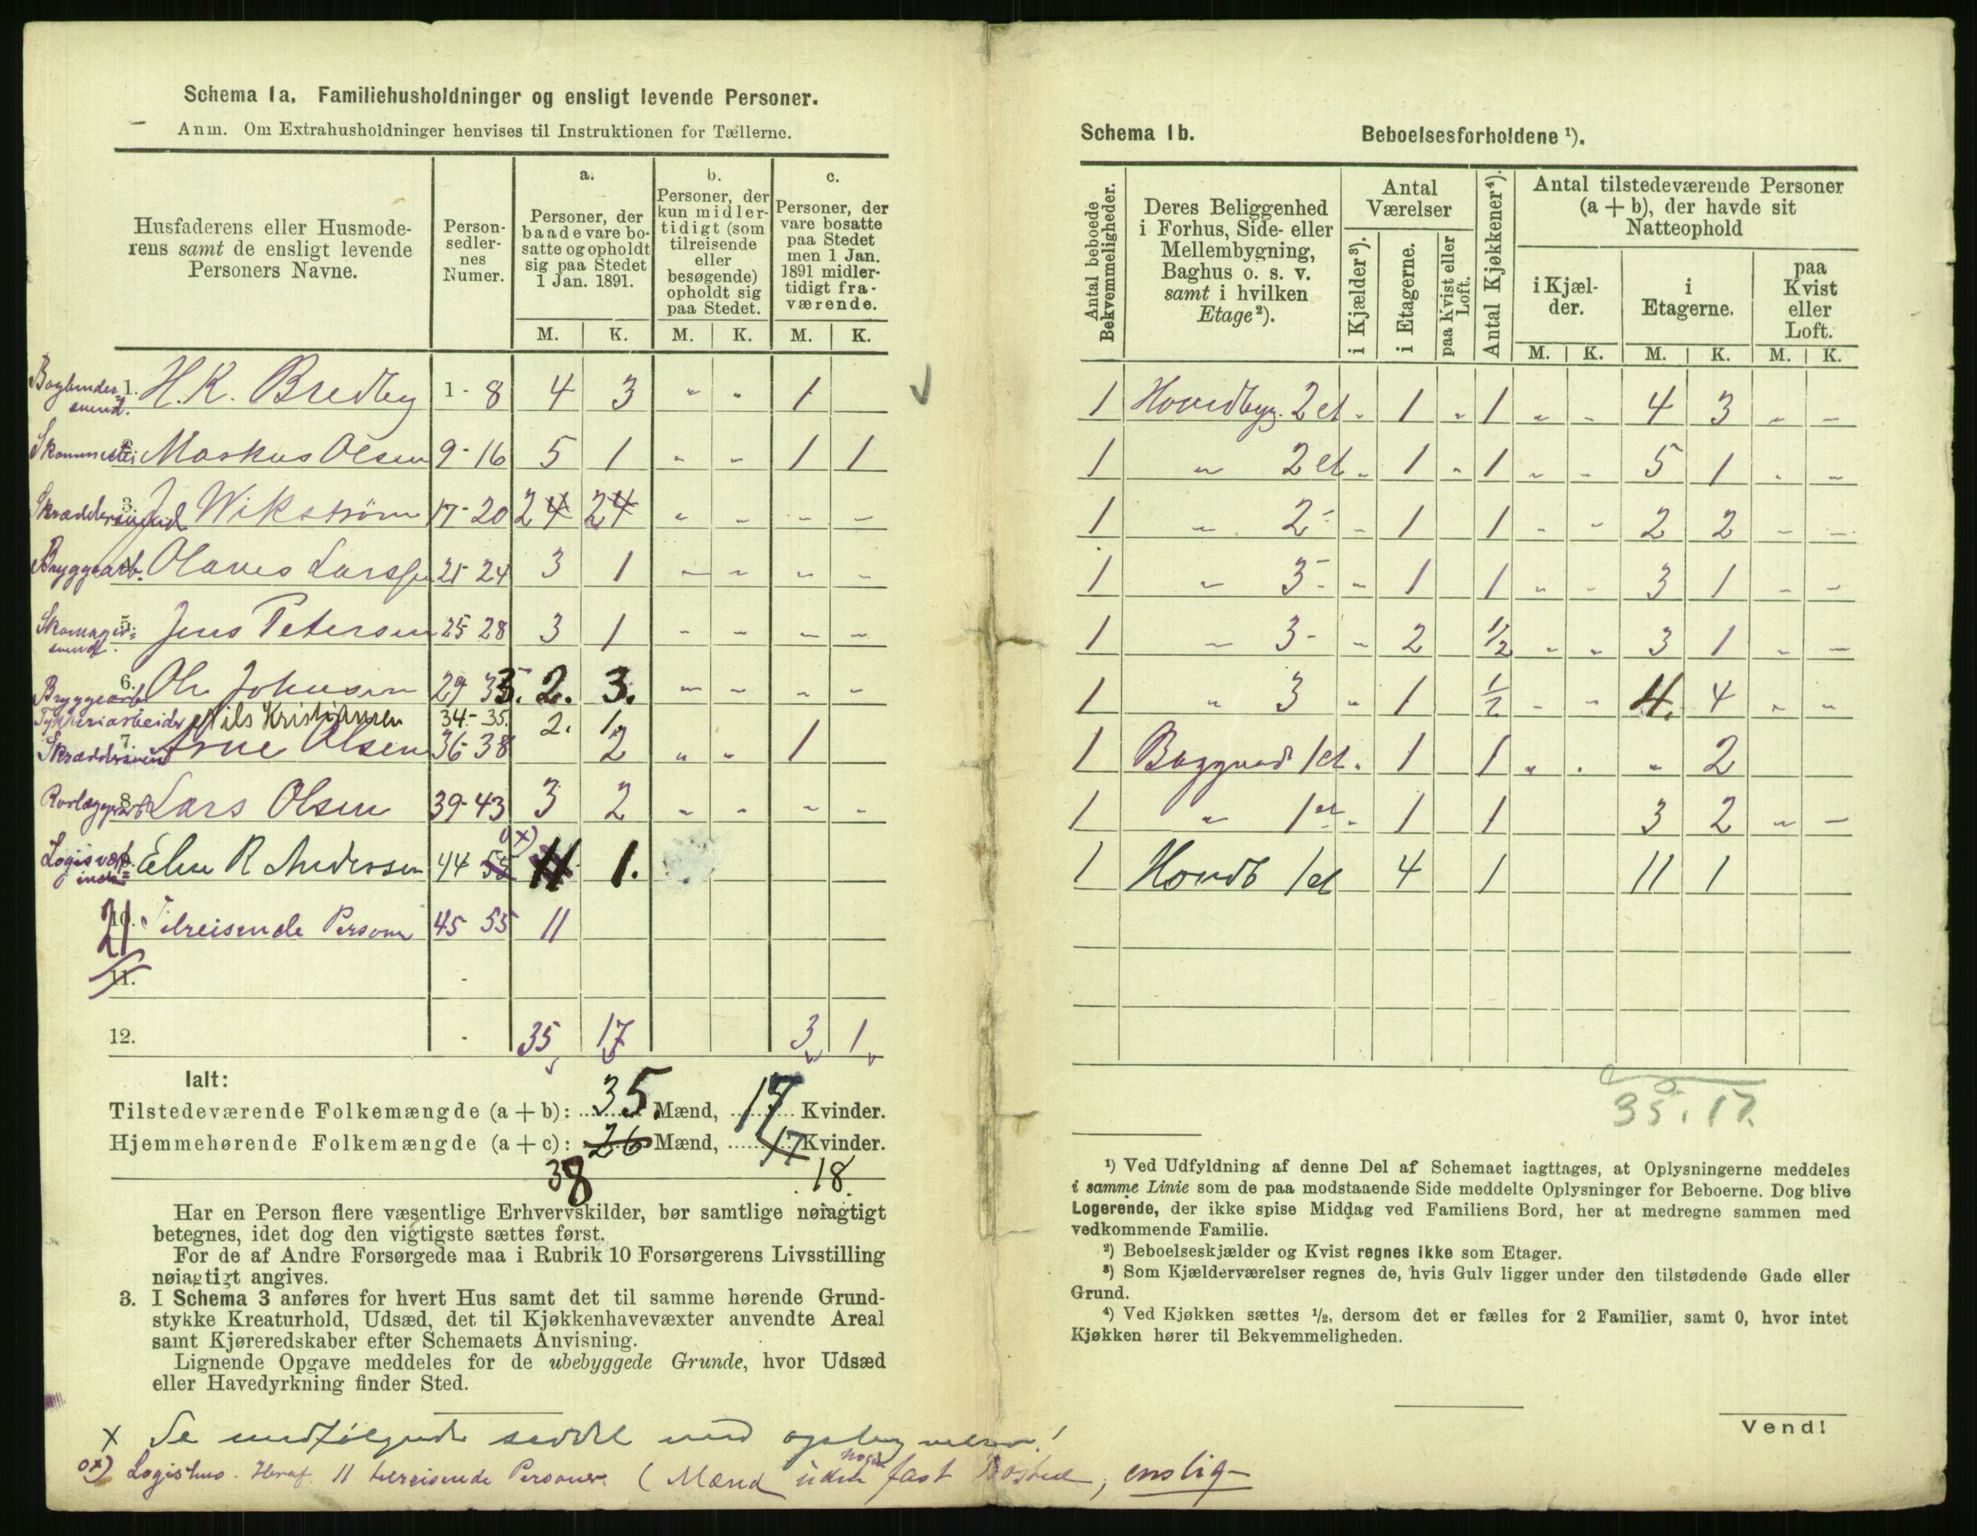 Schema 1a. Familiehusholdninger og ensligt levende Personer.
Anm. Om Extrahusholdninger henvises til Instruktionen for Tællerne.
Husfaderens eller Husmoderens samt de ensligt levende Personers Navne.
Person-sedler-nes Numer.
a. Personer, der baade vare bosatte og opholdt sig paa Stedet 1 Jan. 1891.
b. Personer, der kun midlertidigt (som tilreisende eller besøgende) opholdt sig paa Stedet.
c. Personer, der vare bosatte paa Stedet men 1 Jan. 1891 midlertidigt fraværende.
M. K. M. K. M. K.
Bogbindersvend. 1. H. K. Bredby 1 - 8 4 3 " " 1
Skommester 2. Markus Olsen 9 - 16 5 1 " " 1 1
Skræddersvend 3. Wikstrøm 17 - 20 2 4 2 4 " " " "
Bryggearb. 4. Olaves Larssen 21 - 24 3 1 " " " "
Skomagersvend. 5. Jens Petersen 25 28 3 1 " " " "
Bryggearb. 6. Ole Johnsen 29 33. 2. 3. " " " "
Nils Kristiansen 34 - 35. 2. 1.
Skræddersvend 7. Arne Olsen 36 - 38 2 " " 1
8. Lars Olsen 39 - 43 3 2 " " " "
Elen R Anderssen 44 55 x) 11 1.
21 10. Tilreisende Person 45 55 11
11. -
12. - 35 17 3 1
Ialt:
Tilstedeværende Folkemængde (a + b): 35. Mænd, 17 Kvinder.
Hjemmehørende Folkemængde (a + c): 26 Mænd, 17 Kvinder.
38 18.
Har en Person flere væsentlige Erhvervskilder, bør samtlige nøiagtigt
betegnes, idet dog den vigtigste sættes først.
For de af Andre Forsørgede maa i Rubrik 10 Forsørgerens Livsstilling
nøiagtigt angives.
3. I Schema 3 anføres for hvert Hus samt det til samme hørende Grund-
stykke Kreaturhold, Udsæd, det til Kjøkkenhavevæxter anvendte Areal
samt Kjøreredskaber efter Schemaets Anvisning.
Lignende Opgave meddeles for de ubebyggede Grunde, hvor Udsæd
eller Havedyrkning finder Sted.
x Se medfølgende seddel med !
ox) Logishus. Heraf 11 tilreisende Personer. (Mænd uden noget fast Bosted, enslig -
Schema 1b. Beboelsesforholdene ¹).
Antal beboede Bekvemmeligheder.
Deres Beliggenhed i Forhus, Side- eller Mellembygning, Baghus o. s. v. samt i hvilken Etage²).
Antal Værelser
i Kjælder³).
i Etagerne.
paa Kvist eller Loft.
Antal Kjøkkener⁴).
Antal tilstedeværende Personer (a + b), der havde sit Natteophold
i Kjælder.
i Etagerne.
paa Kvist eller Loft.
M. K. M. K. M. K.
1 Hovedbyg. 2 et " 1 " 1 " " 4 3 " "
1 " 2 et " 1 " 1 " " 5 1 " "
1 " 2 - " 1 1 " " 2 2 " "
1 " 3 - " 1 1 " " 3 1 " "
1 " 3 - " 2 1/2 " " 3 1 " "
1 " 3 " 1 1/2 " " 4. 4 " "
1 Baggaard 1 et " 1 1 " " " 2
1 " 1 et " 1 1 3 2 " "
1 Hovdb 1 et 4 1 11 1
35. 17.
¹) Ved Udfyldning af denne Del af Schemaet iagttages, at Oplysningerne meddeles
i samme Linie som de paa modstaaende Side meddelte Oplysninger for Beboerne. Dog blive
Logerende, der ikke spise Middag ved Familiens Bord, her at medregne sammen med
vedkommende Familie.
²) Beboelseskjælder og Kvist regnes ikke som Etager.
³) Som Kjælderværelser regnes de, hvis Gulv ligger under den tilstødende Gade eller
Grund.
⁴) Ved Kjøkken sættes ½, dersom det er fælles for 2 Familier, samt 0, hvor intet
Kjøkken hører til Bekvemmeligheden.
Vend!